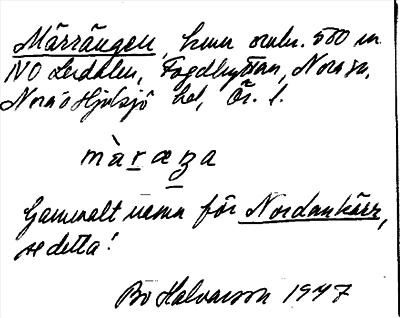 Märrängen, hmn omkr. 500 m
NO Lerdalen, Fogdhyttan, Nora sn,
Nora o Hjulsjö hd, Ör. l.
màræza
Gammalt namn för Nordankärr,
se detta!
Bo Halvarson 1947